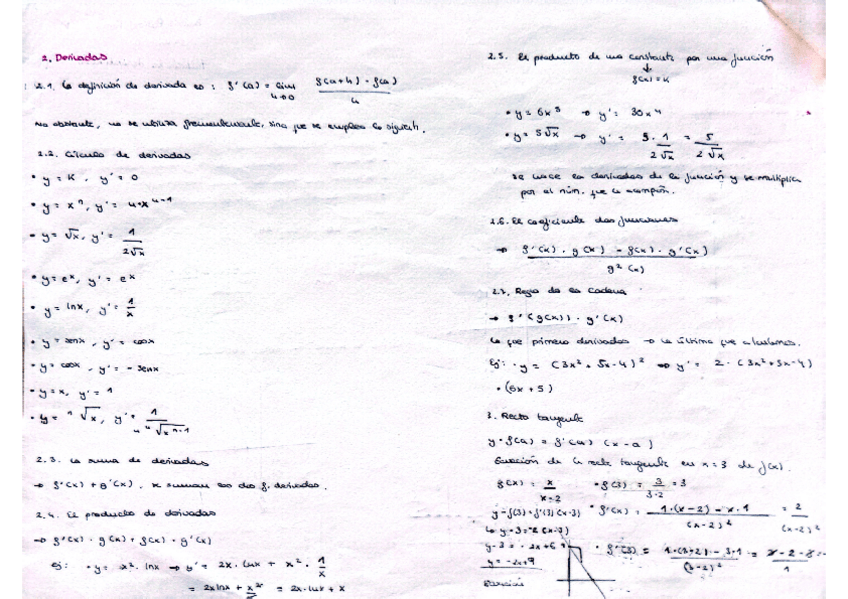 2. Derivadas
2.1. La definición de derivada es: f'(a) = lim h→0 f(a+h) - f(a) / h
No obstante, no se utiliza frecuentemente, sino que se emplea lo siguiente.
2.2. Cálculo de derivadas
• y = K, y' = 0
• y = xⁿ, y' = n·xⁿ⁻¹
• y = √x, y' = 1 / 2√x
• y = eˣ, y' = eˣ
• y = lnx, y' = 1/x
• y = senx, y' = cosx
• y = cosx, y' = - senx
• y = x, y' = 1
• y = ⁿ√x, y' = 1 / n ⁿ√xⁿ⁻¹
2.3. La suma de derivadas
→ f'(x) + g'(x), se suman las dos f. derivadas.
2.4. El producto de derivadas
→ f'(x) · g(x) + f(x) · g'(x)
Ej: • y = x² · lnx → y' = 2x · lnx + x² · 1/x
= 2x lnx + x²/x = 2x·lnx + x
2.5. El producto de una constante por una función
↓
f(x) = K
• y = 6x⁵ → y' = 30x⁴
• y = 5√x → y' = 5·1 / 2√x = 5 / 2√x
se hace la derivada de la función y se multiplica
por el núm. que la acompañ.
2.6. El coeficiente dos funciones
→ f'(x) · g(x) - f(x) · g'(x) / g²(x)
2.7. Regla de la cadena
→ f'(g(x)) · g'(x)
lo que primero derivados → la última que
Ej: • y = (3x² + 5x - 4)² → y' = 2 · (3x² + 5x - 4)
• (6x + 5)
3. Recta tangente
y - f(a) = f'(a) (x - a)
Ecuación de la recta tangente en x = 3 de f(x).
f(x) = x / x-2 • f(3) = 3 / 3-2 = 3
y - f(3) = f'(3) (x-3) • f'(x) = 1·(x-2) - x·1 / (x-2)² = 2 / (x-2)²
↳ y - 3 = -2(x-3)
y - 3 = -2x + 6 • f'(3) = 1·(3-2) - 3·1 / (3-2)² =
y = -2x + 9
Ecuación